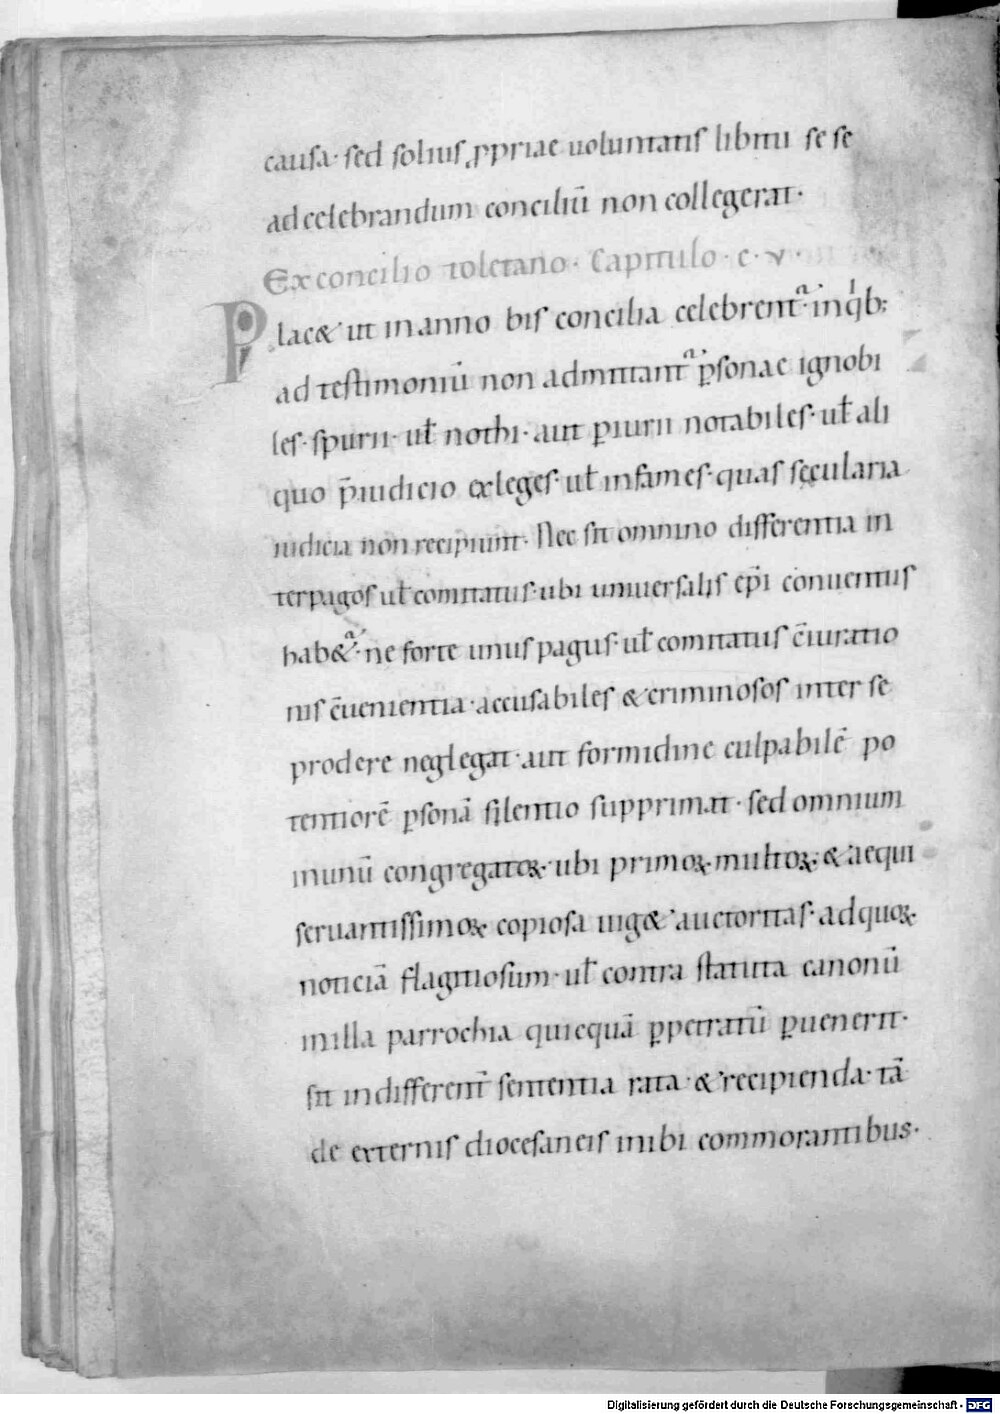 causa· sed solius ꝓpriae uoluntatis libitu se se
ad celebrandum conciliū non collegerat·
Ex concilio toletano· Capitulo· c· v·
Plac&· ut in anno bis concilia celebrent᷑· in qͥb;
ad testimoniū non admittant᷑ ꝑsonae ignobi
les· spurii· ul̄ nothi· aut ꝑiurii notabiles· ul̄ ali
quo p̄iudicio exleges· ul̄ infames· quas sęcularia
iudicia non recipiunt· Nec sit omnino differentia in
ter pagos ul̄ comitatus· ubi uniuersalis ep̄i conuentus
hab&᷑· ne forte unus pagus· ul̄ comitatus c̄iuratio
nis c̄uenientia· accusabiles & criminosos inter se
prodere neglegat· aut formidine culpabilē po
tentiorē ꝑsonā silentio supprimat· sed omnium
inunū congregatoꝝ· ubi primoꝝ· multoꝝ· & aequi
seruantissimoꝝ copiosa uig& auctoritas· ad quoꝝ·
noticiā flagitiosum· ul̄ contra statuta canonū
in illa parrochia quicquā ꝑpetratū ꝑuenerit·
sit indifferent̄ sententia rata· & recipienda· tā
de externis diocesaneis inibi commorantibus·
Digitalisierung gefördert durch die Deutsche Forschungsgemeinschaft - DFG